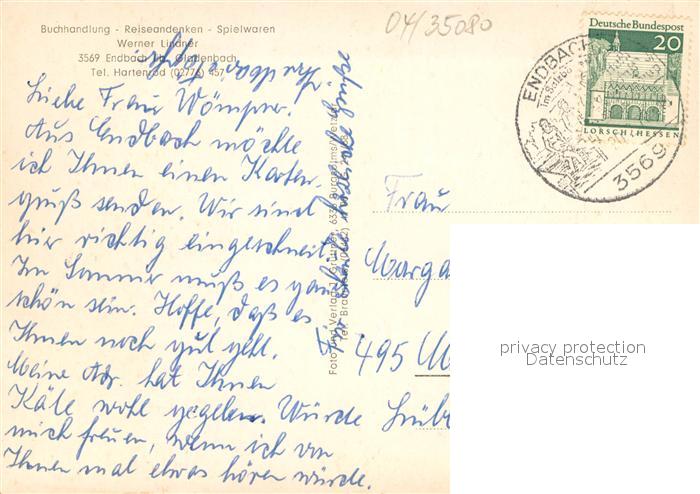 Buchhandlung - Reiseandenken - Spielwaren
Werner Lindner
3569 Endbach b. Gladenbach
Tel. Hartenrod (02776) 457
04/35080
Deutsche Bundespost
20
LORSCH/HESSEN
ENDBACH
3569
Liebe Frau Wömpner!
Aus Endbach möchte
ich Ihnen einen Karten-
gruß senden. Wir sind
hier richtig eingeschneit.
Im Sommer muß es ganz
schön sein. Hoffe, daß es
Ihnen noch gut geht.
Meine Adr. hat Ihnen
Käte wohl gegeben. Würde
mich freuen, wenn ich von
Ihnen mal etwas hören würde.
Für heute herzliche Grüße
Foto und Verlag
Frau
Marga
495 M
Lüb
privacy protection
Datenschutz